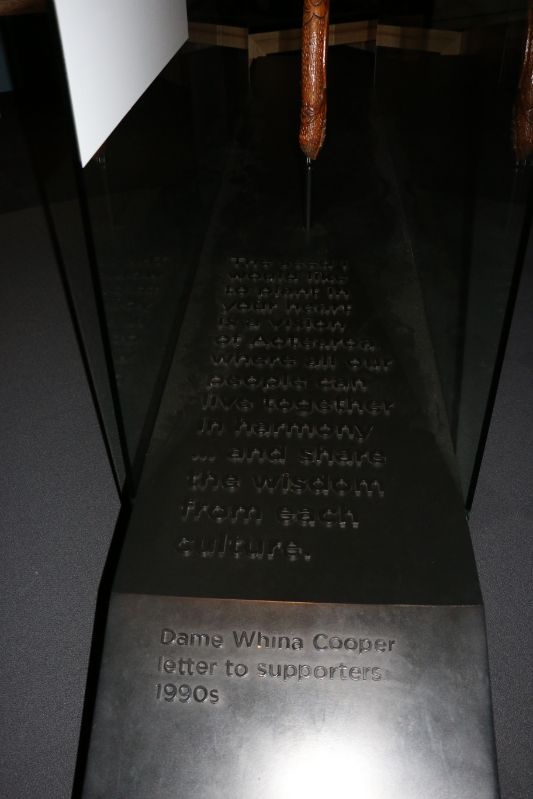 The seed I
would like
to plant in
your heart
is a vision
of Aotearoa
where all our
people can
live together
in harmony
... and share
the wisdom
from each
culture.
Dame Whina Cooper
letter to supporters
1990s